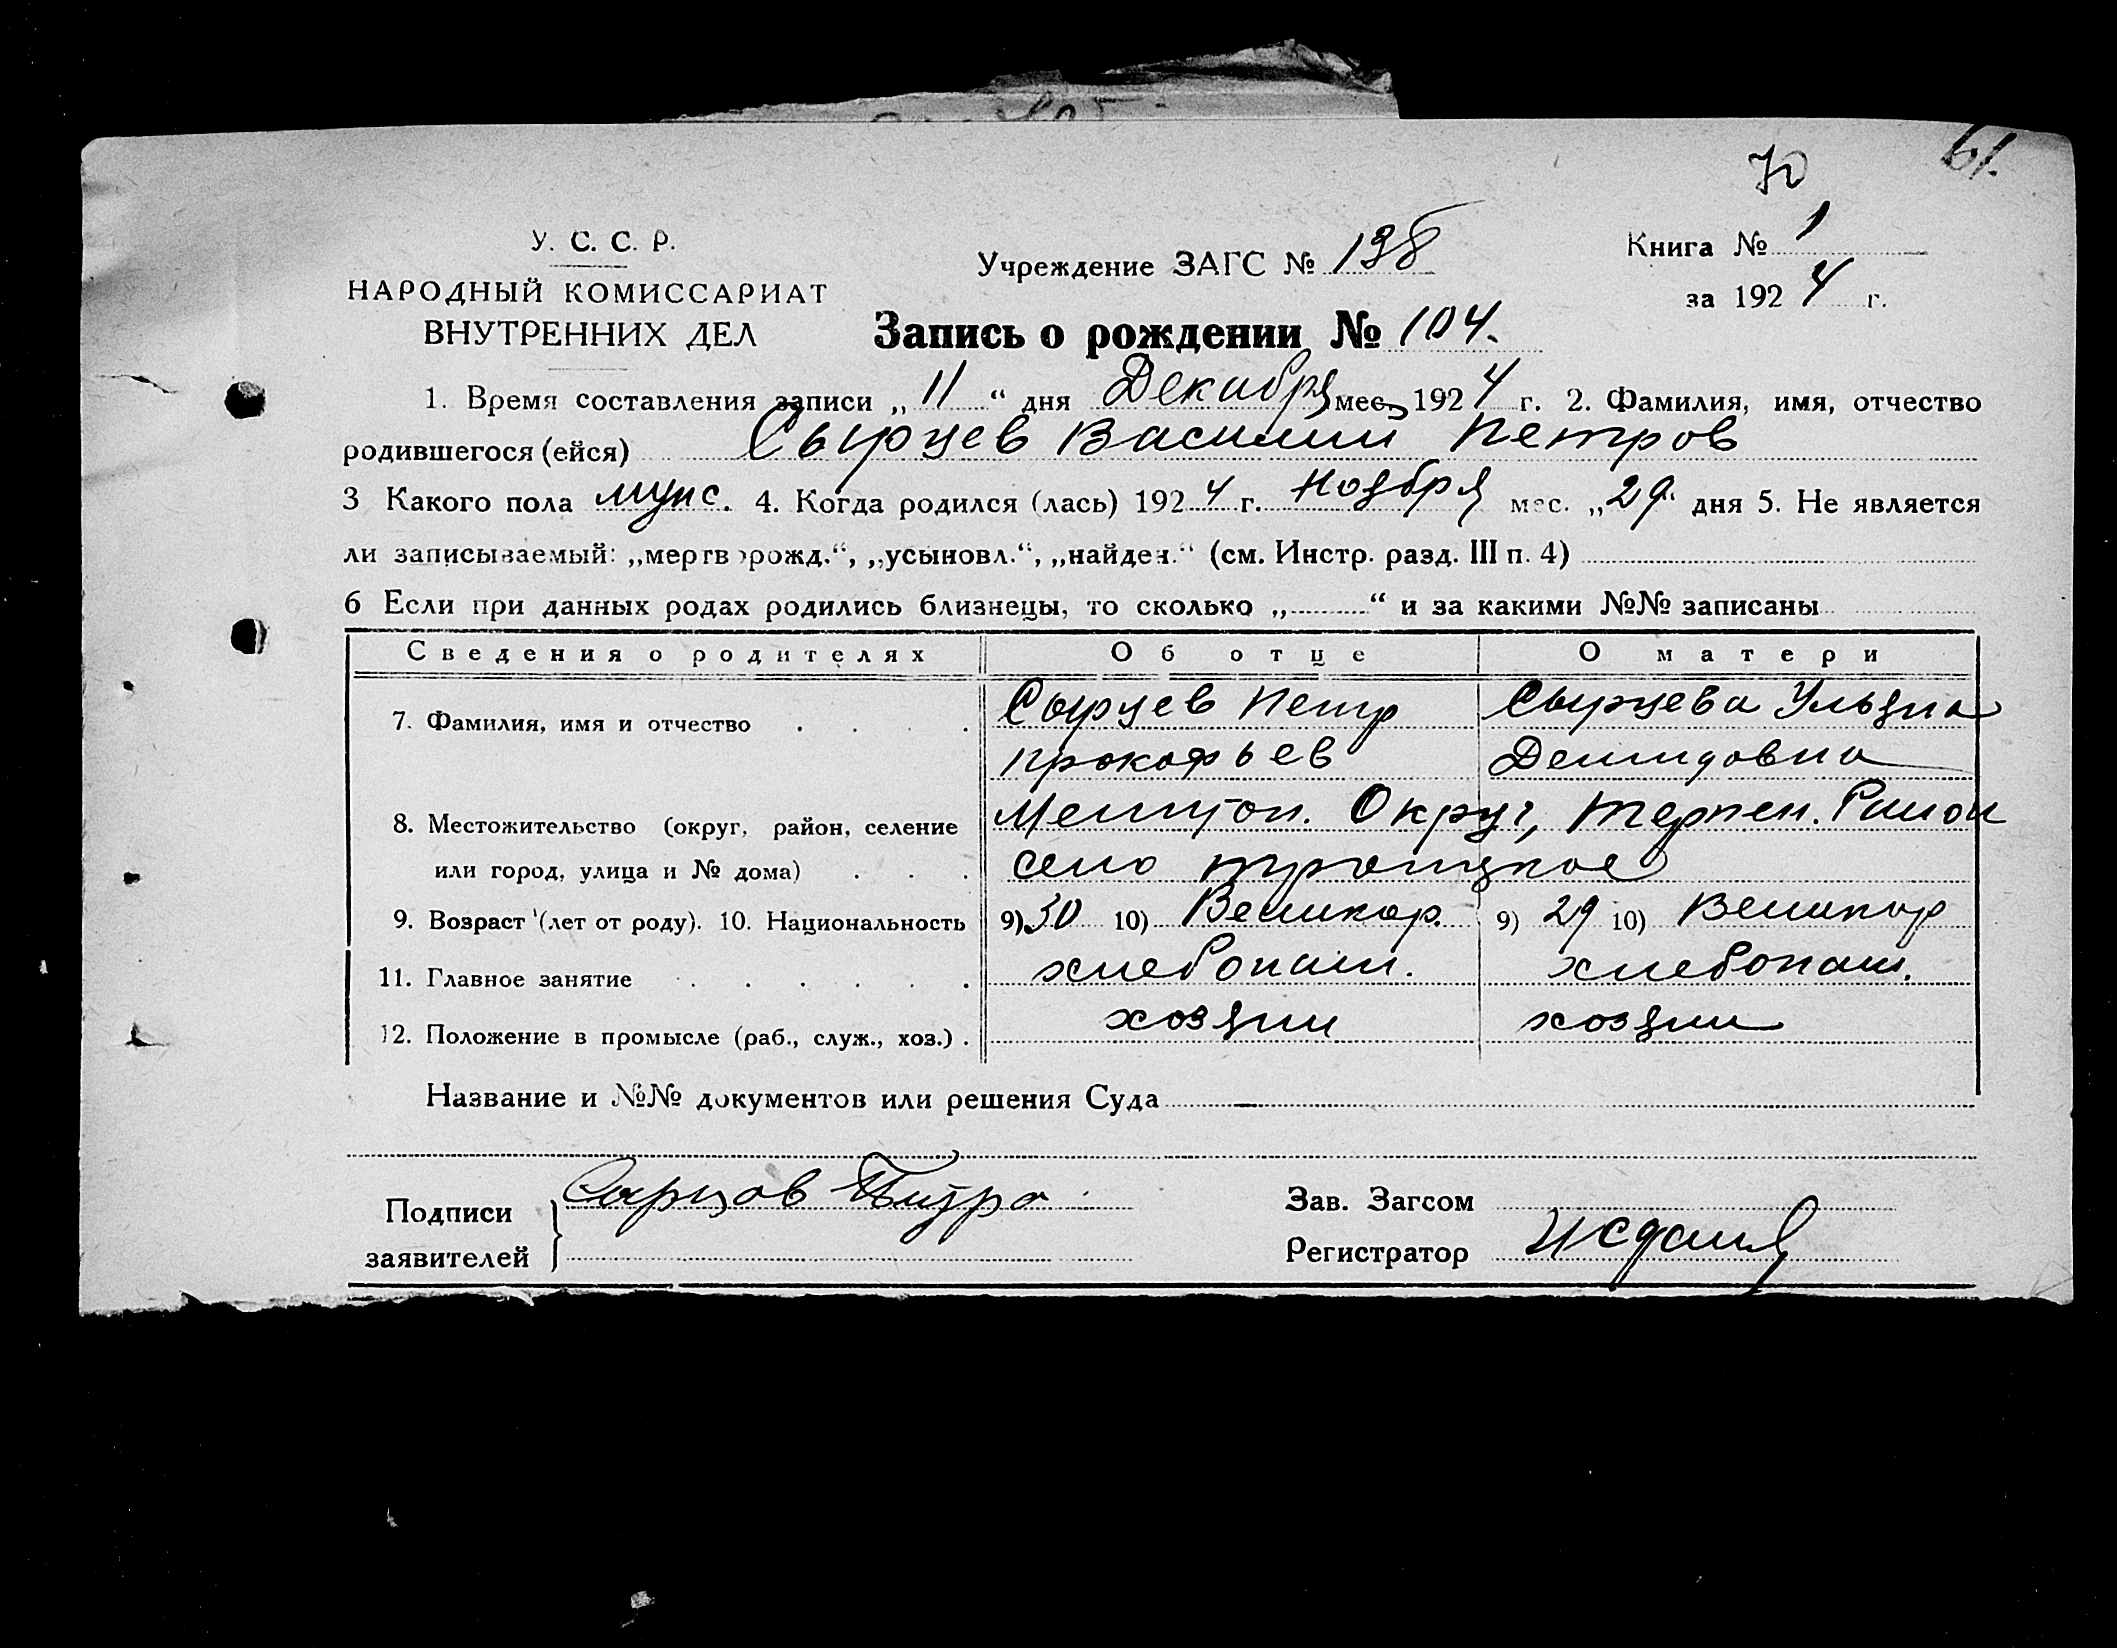 70 61.
У. С. С. Р.
НАРОДНЫЙ КОМИССАРИАТ
ВНУТРЕННИХ ДЕЛ
Учреждение ЗАГС № 138
Книга № 1
за 1924 г.
Запись о рождении № 104.
1. Время составления записи „11“ дня Декабря мес. 1924 г. 2. Фамилия, имя, отчество
родившегося (ейся) Сырцев Василий Петров
3 Какого пола мужс. 4. Когда родился (лась) 1924 г. Ноября мес. „29“ дня 5. Не является
ли записываемый: „мертворожд.“, „усыновл.“, „найден.“ (см. Инстр. разд. III п. 4)
6 Если при данных родах родились близнецы, то сколько „ “ и за какими №№ записаны
Сведения о родителях Об отце О матери
7. Фамилия, имя и отчество Сырцев Петр Сырцева Ульяна
Прокофьев Демидовна
8. Местожительство (округ, район, селение Мелитоп. Округ, Терпен. Район
или город, улица и № дома) село Троицкое
9. Возраст (лет от роду). 10. Национальность 9) 30 10) Великор. 9) 29 10) Великор
11. Главное занятие хлебопаш. хлебопаш.
12. Положение в промысле (раб., служ., хоз.) хозяин хозяин
Название и №№ документов или решения Суда —
Подписи Сырцов Зав. Загсом
заявителей Регистратор